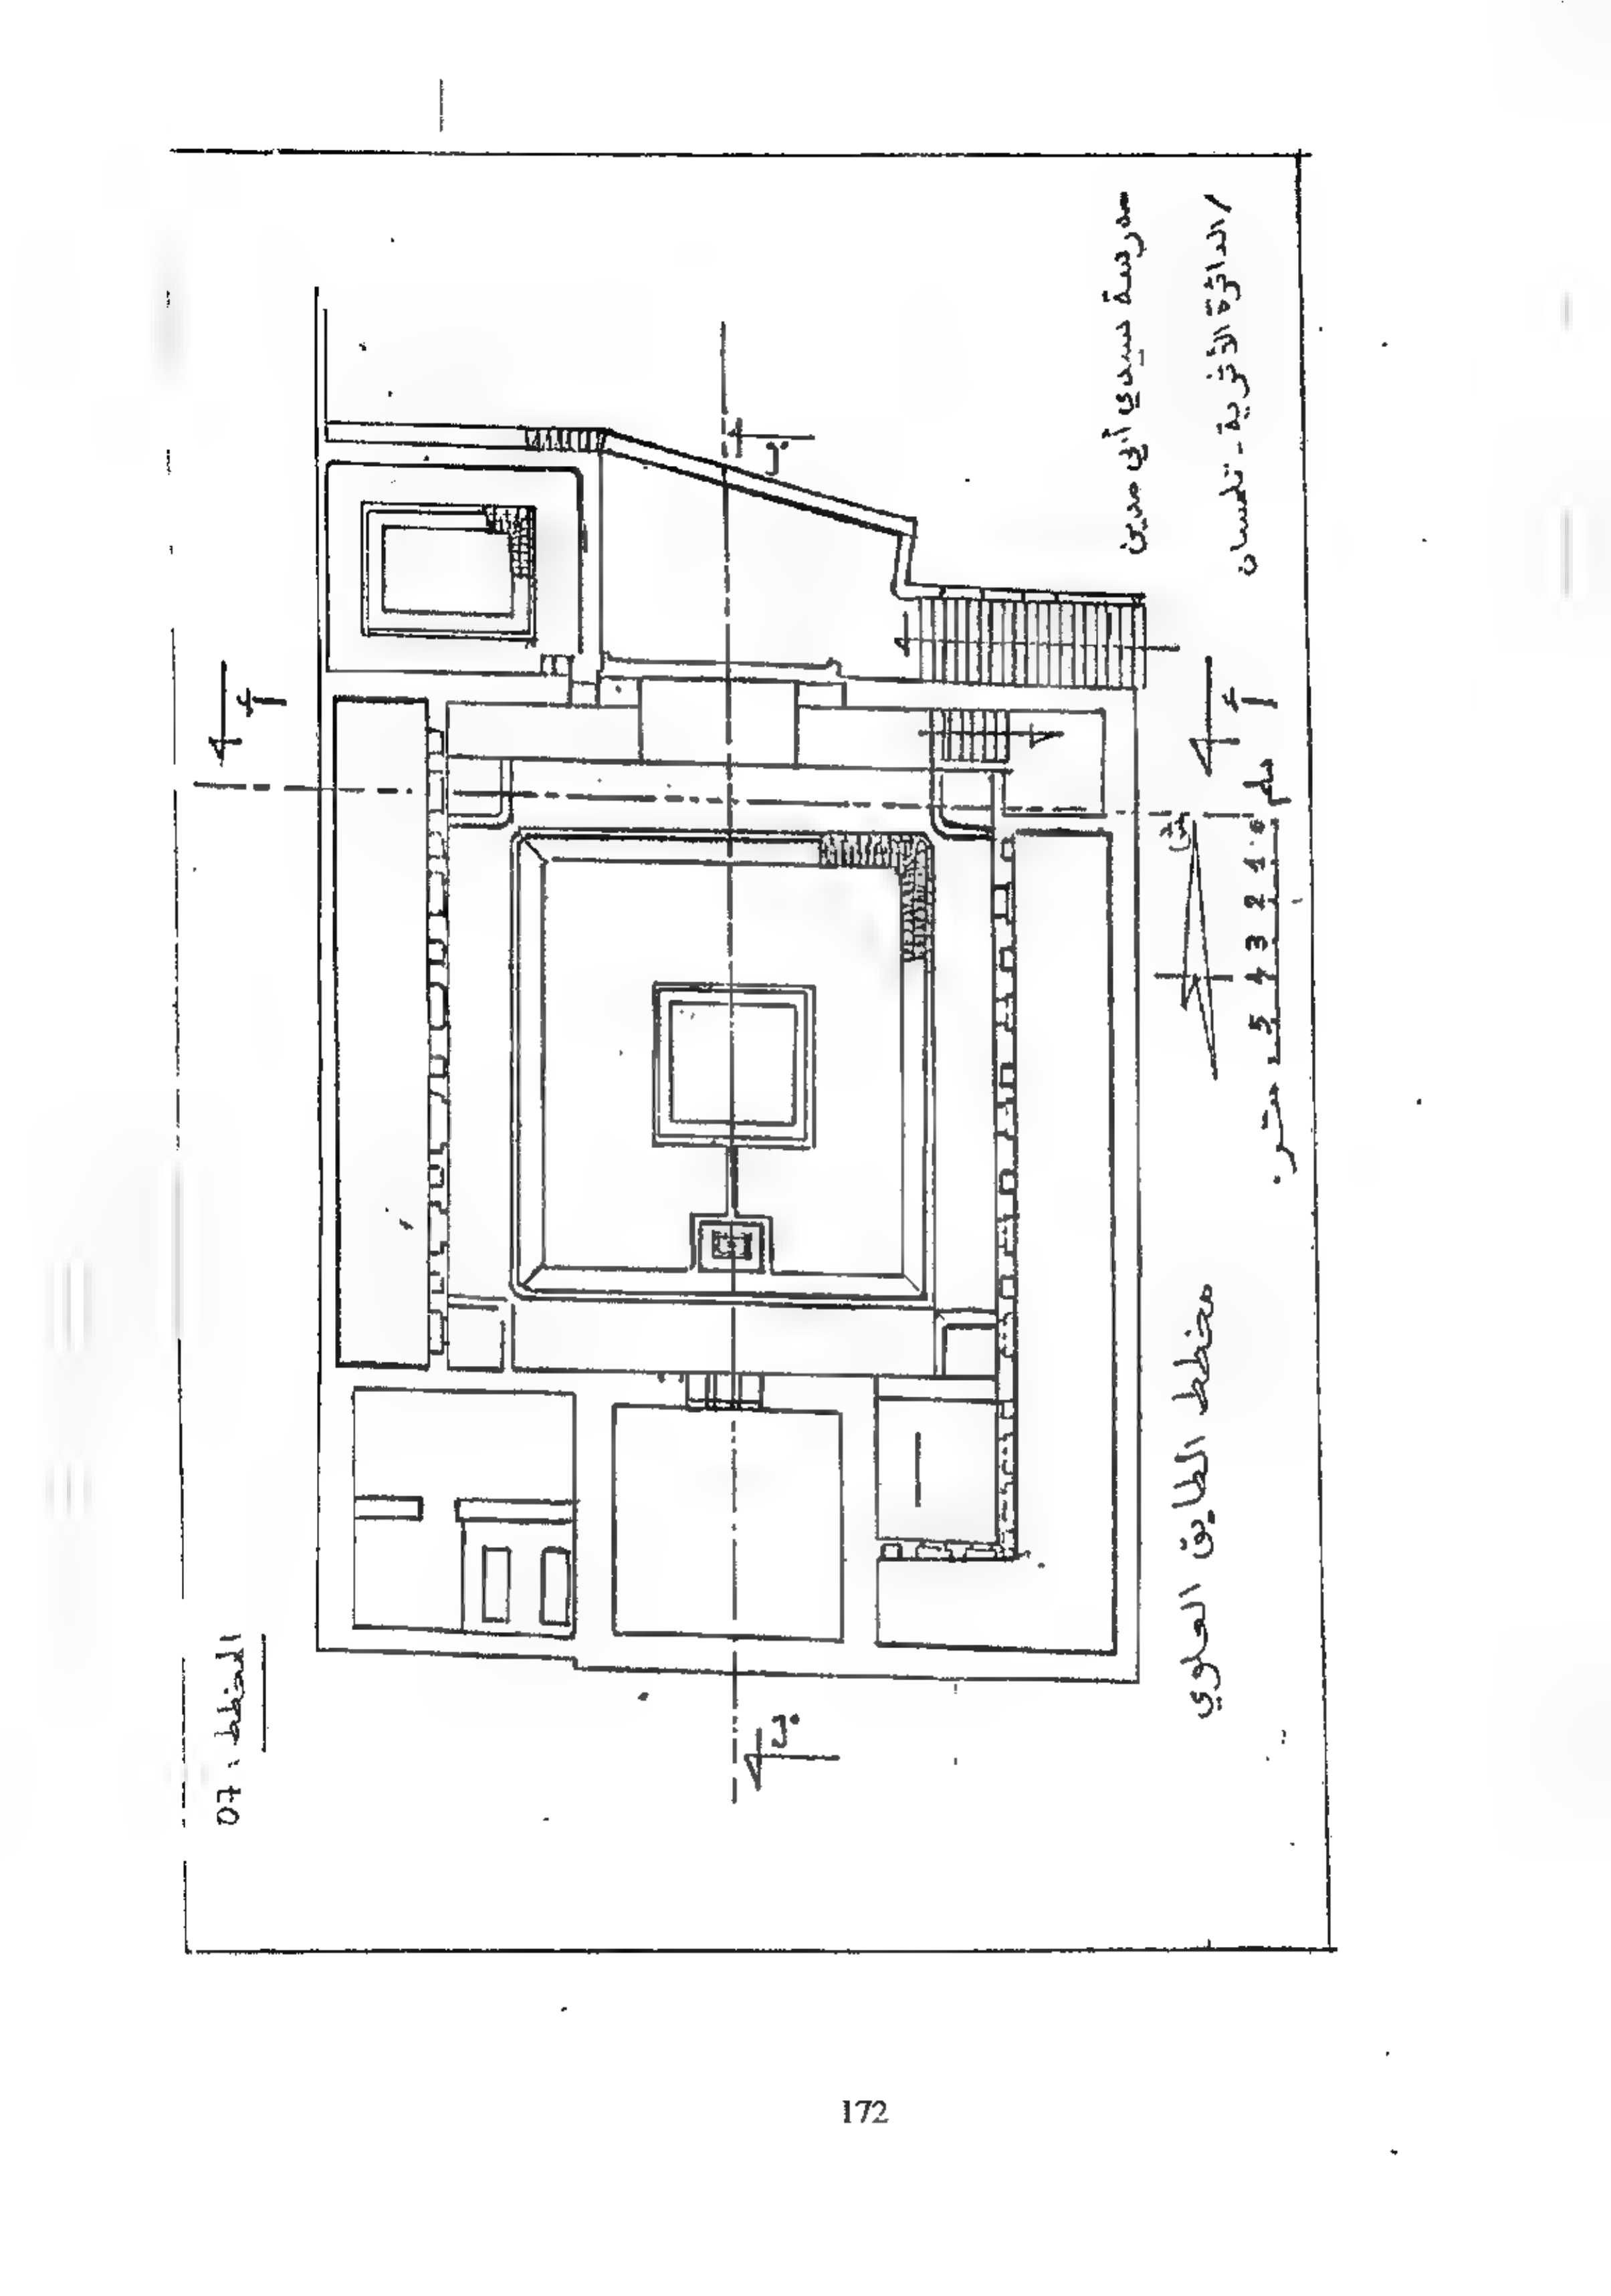 المخطط : 07
مدرسة سيدي أبي مدين
/الدائرة الأثرية - تلمسان
مخطط الطابق العلوي
أ
أ
ب
ب
ش
سلم
0 1 2 3 4 5 متر
172